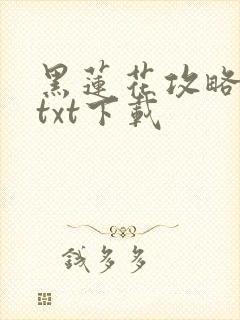 黑蓮花攻略
txt下載
錢多多